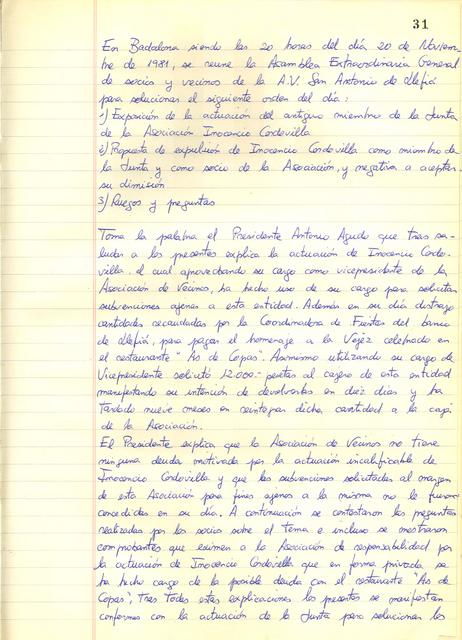 31
En Badalona siendo las 20 horas del día 20 de Noviem-
bre de 1981, se reune la Asamblea Extraordinaria General
de socios y vecinos de la A.V. San Antonio de Llefiá
para solucionar el siguiente orden del día:
1) Exposición de la actuación del antiguo miembro de la Junta
de la Asociación Inocencio Cordovilla
2) Propuesta de expulsión de Inocencio Cordovilla como miembro de
la Junta y como socio de la Asociación, y negativa a aceptar
su dimisión
3) Ruegos y preguntas
Toma la palabra el Presidente Antonio Agudo que tras sa-
ludar a los presentes explica la actuación de Inocencio Cordo-
villa. el cual aprovechando su cargo como vicepresidente de la
Asociación de Vecinos, ha hecho uso de su cargo para solicitar
subvenciones ajenas a esta entidad. Además en su día distrajo
cantidades recaudadas por la Coordinadora de Fiestas del barrio
de Llefiá, para pagar el homenaje a la Vejez celebrado en
el restaurante "As de Copas". Asimismo utilizando su cargo de
Vicepresidente solicitó 12.000.- pesetas al cajero de esta entidad
manifestando su intención de devolverlas en diez días y ha
tardado nueve meses en reintegrar dicha cantidad a la caja
de la Asociación.
El Presidente explica que la Asociación de Vecinos no tiene
ninguna deuda motivada por la actuación incalificable de
Inocencio Cordovilla y que las subvenciones solicitadas al margen
de esta Asociación para fines ajenos a la misma no le fueron
concedidas en su día. A continuación se contestaron las preguntas
realizadas por los socios sobre el tema e incluso se mostraron
comprobantes que eximen a la Asociación de responsabilidad por
la actuación de Inocencio Cordovilla que en forma privada se
ha hecho cargo de la posible deuda con el restaurante "As de
Copas", Tras todas estas explicaciones los presentes se manifiestan
conformes con la actuación de la Junta para solucionar los